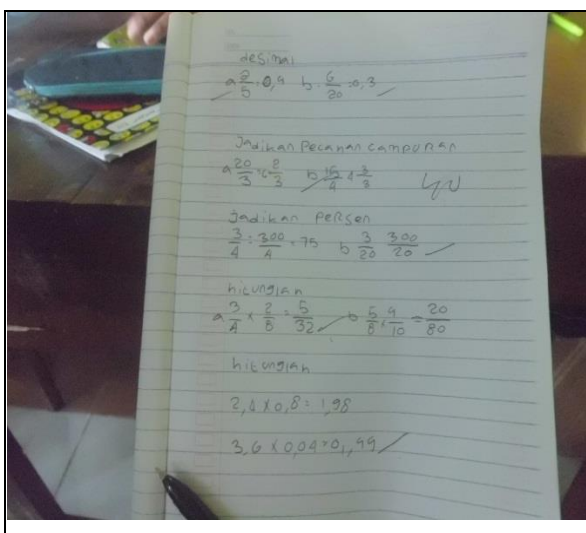 desimal
a 2/5 : 0,4 b. 6/20 : 0,3
Jadikan Pecahan campuran
a 20/3 2/3 b 15/4
Jadikan Persen
3/4 : 300/4 = 75 b 3/20 300/20
hitunglah
a 3/4 x 2/8 = 5/32 b 5/8 x 4/10 = 20/80
hitunglah
2,4 x 0,8 = 1,98
3,6 x 0,04 = 0,